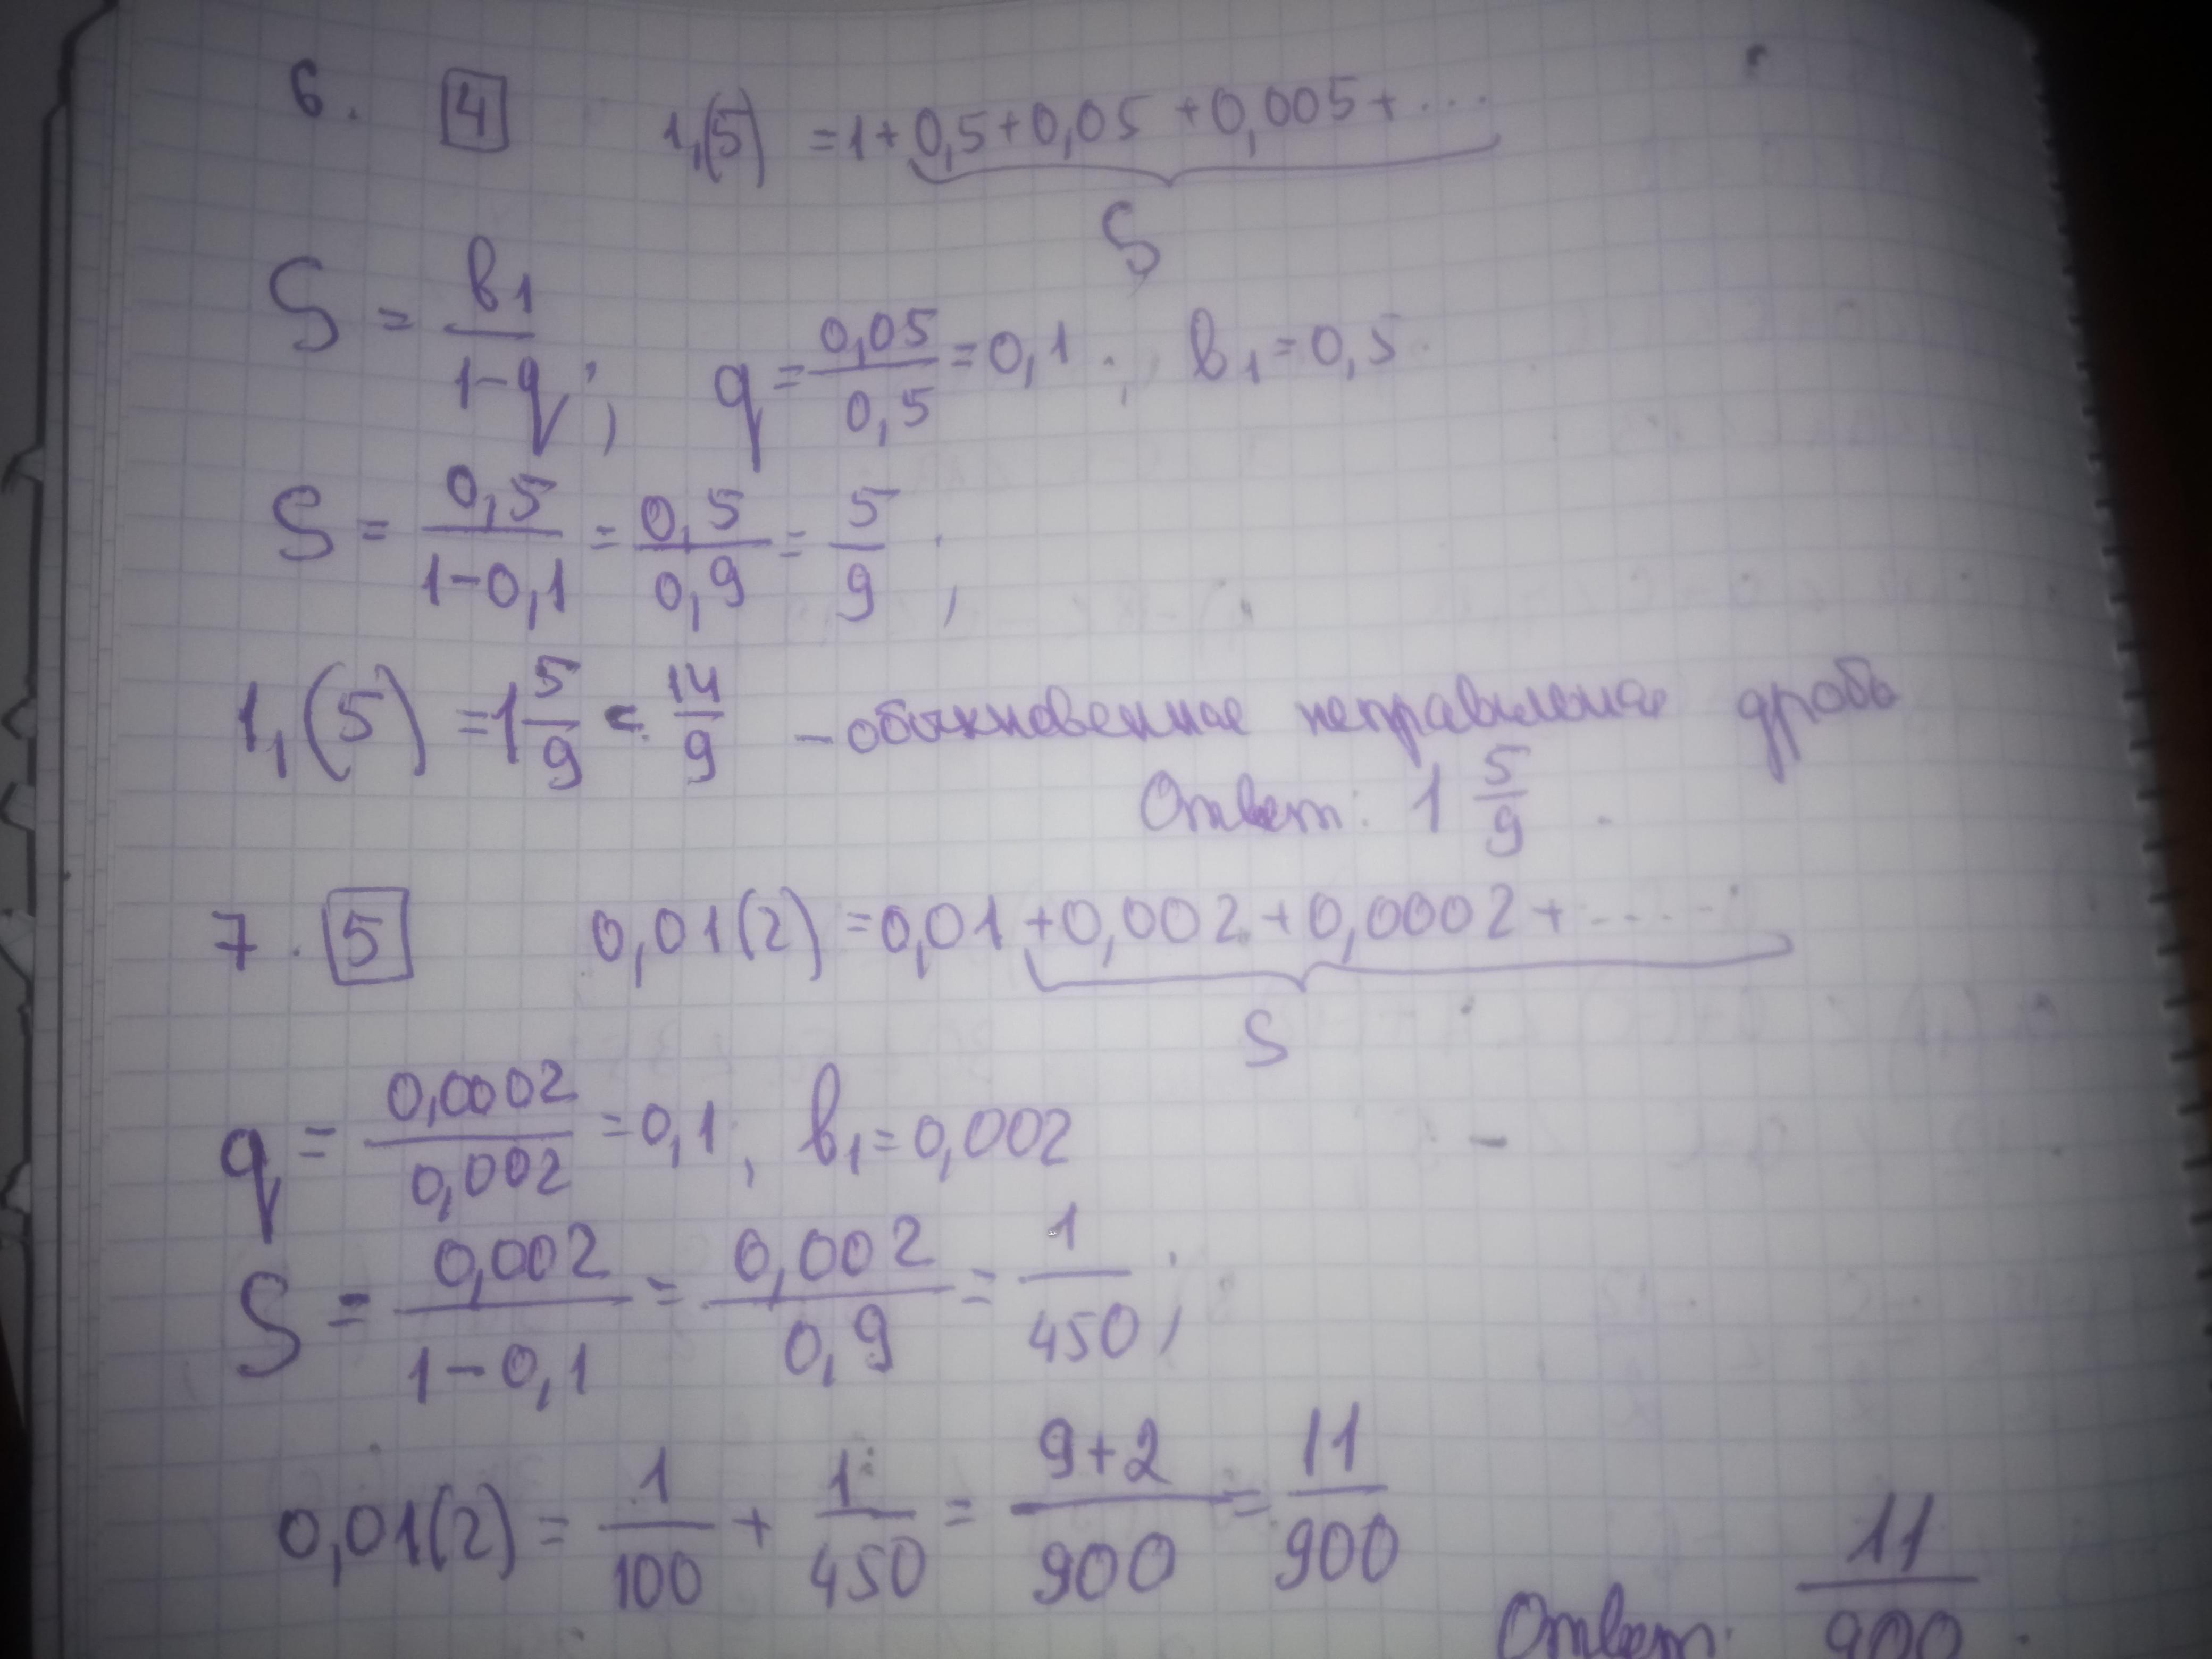 6. 4 1,(5) = 1 + 0,5 + 0,05 + 0,005 + ...
S
S = b1/(1-q); q = 0,05/0,5 = 0,1; b1 = 0,5.
S = 0,5/(1-0,1) = 0,5/0,9 = 5/9;
1,(5) = 1 5/9 = 14/9 – обыкновенная неправильная дробь
Ответ: 1 5/9.
7. 5 0,01(2) = 0,01 + 0,002 + 0,0002 + .....
S
q = 0,0002/0,002 = 0,1, b1 = 0,002
S = 0,002/(1-0,1) = 0,002/0,9 = 1/450;
0,01(2) = 1/100 + 1/450 = (9+2)/900 = 11/900
Ответ: 11/900.